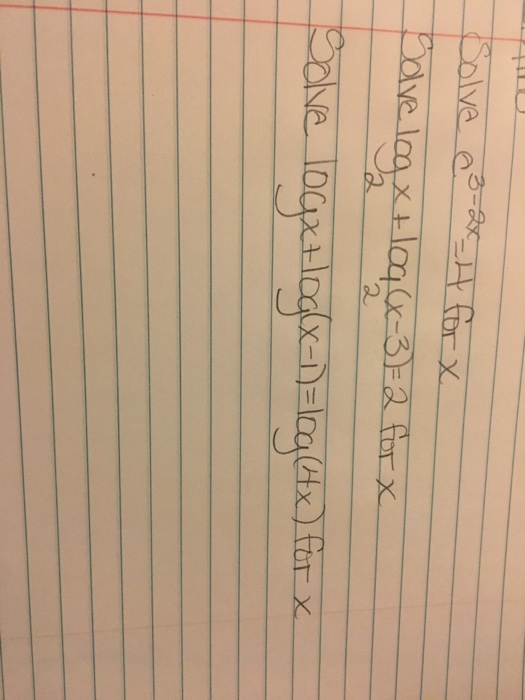 Solve e^{3-2x}=4 for x
Solve log₂x+log₂(x-3)=2 for x
Solve logx+log(x-1)=log(4x) for x